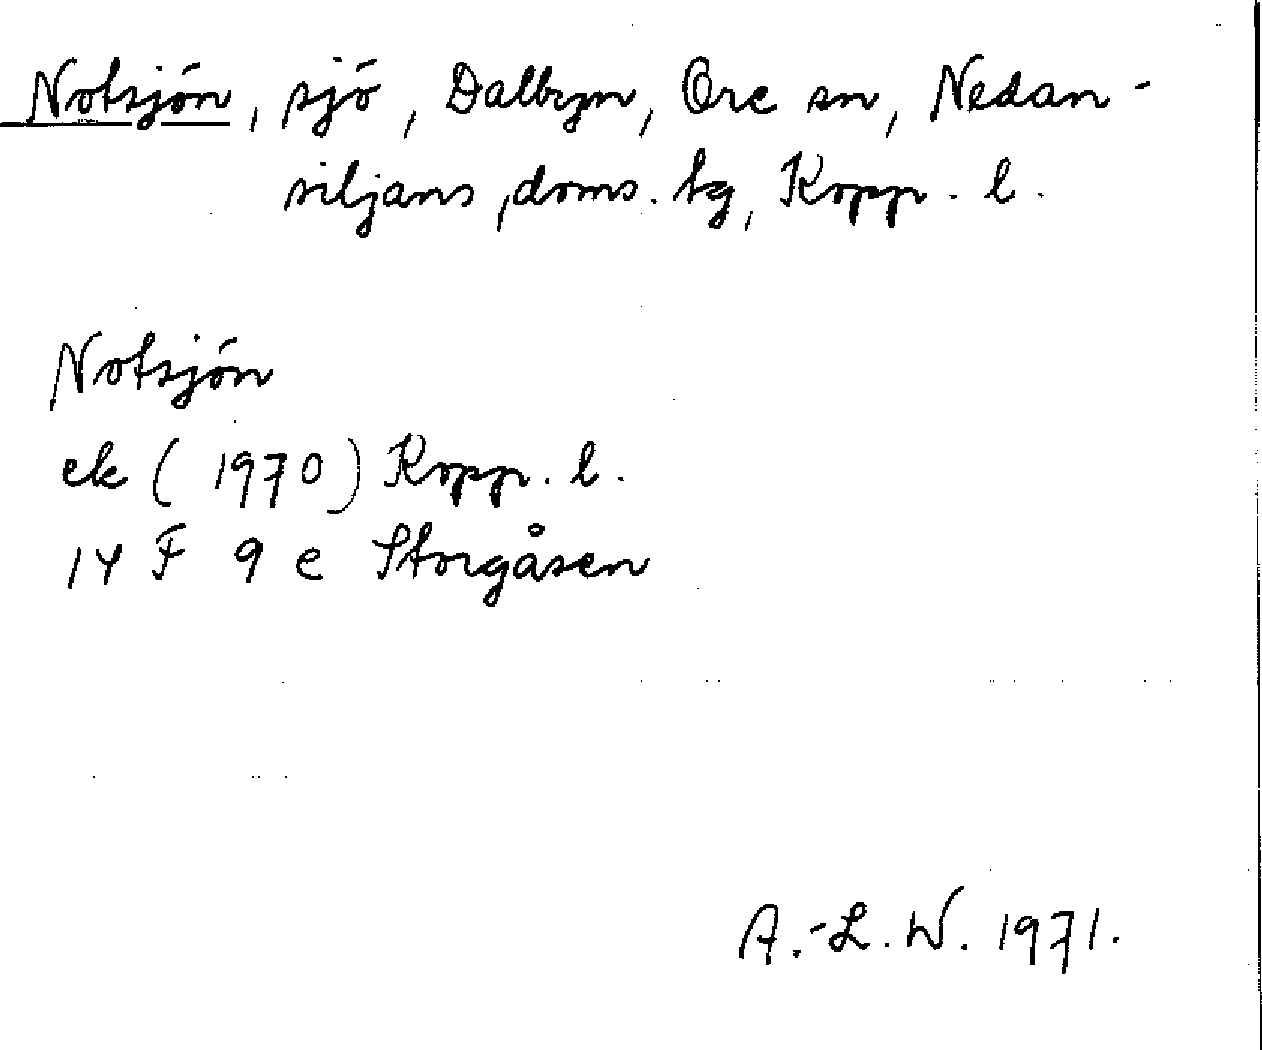 Notsjön, sjö, Dalbyn, Ore sn, Nedan-
siljans, doms. tg, Kopp. l.
Notsjön
ek (1970) Kopp. l.
14 F 9 e Storgåsen
A.-L. W. 1971.